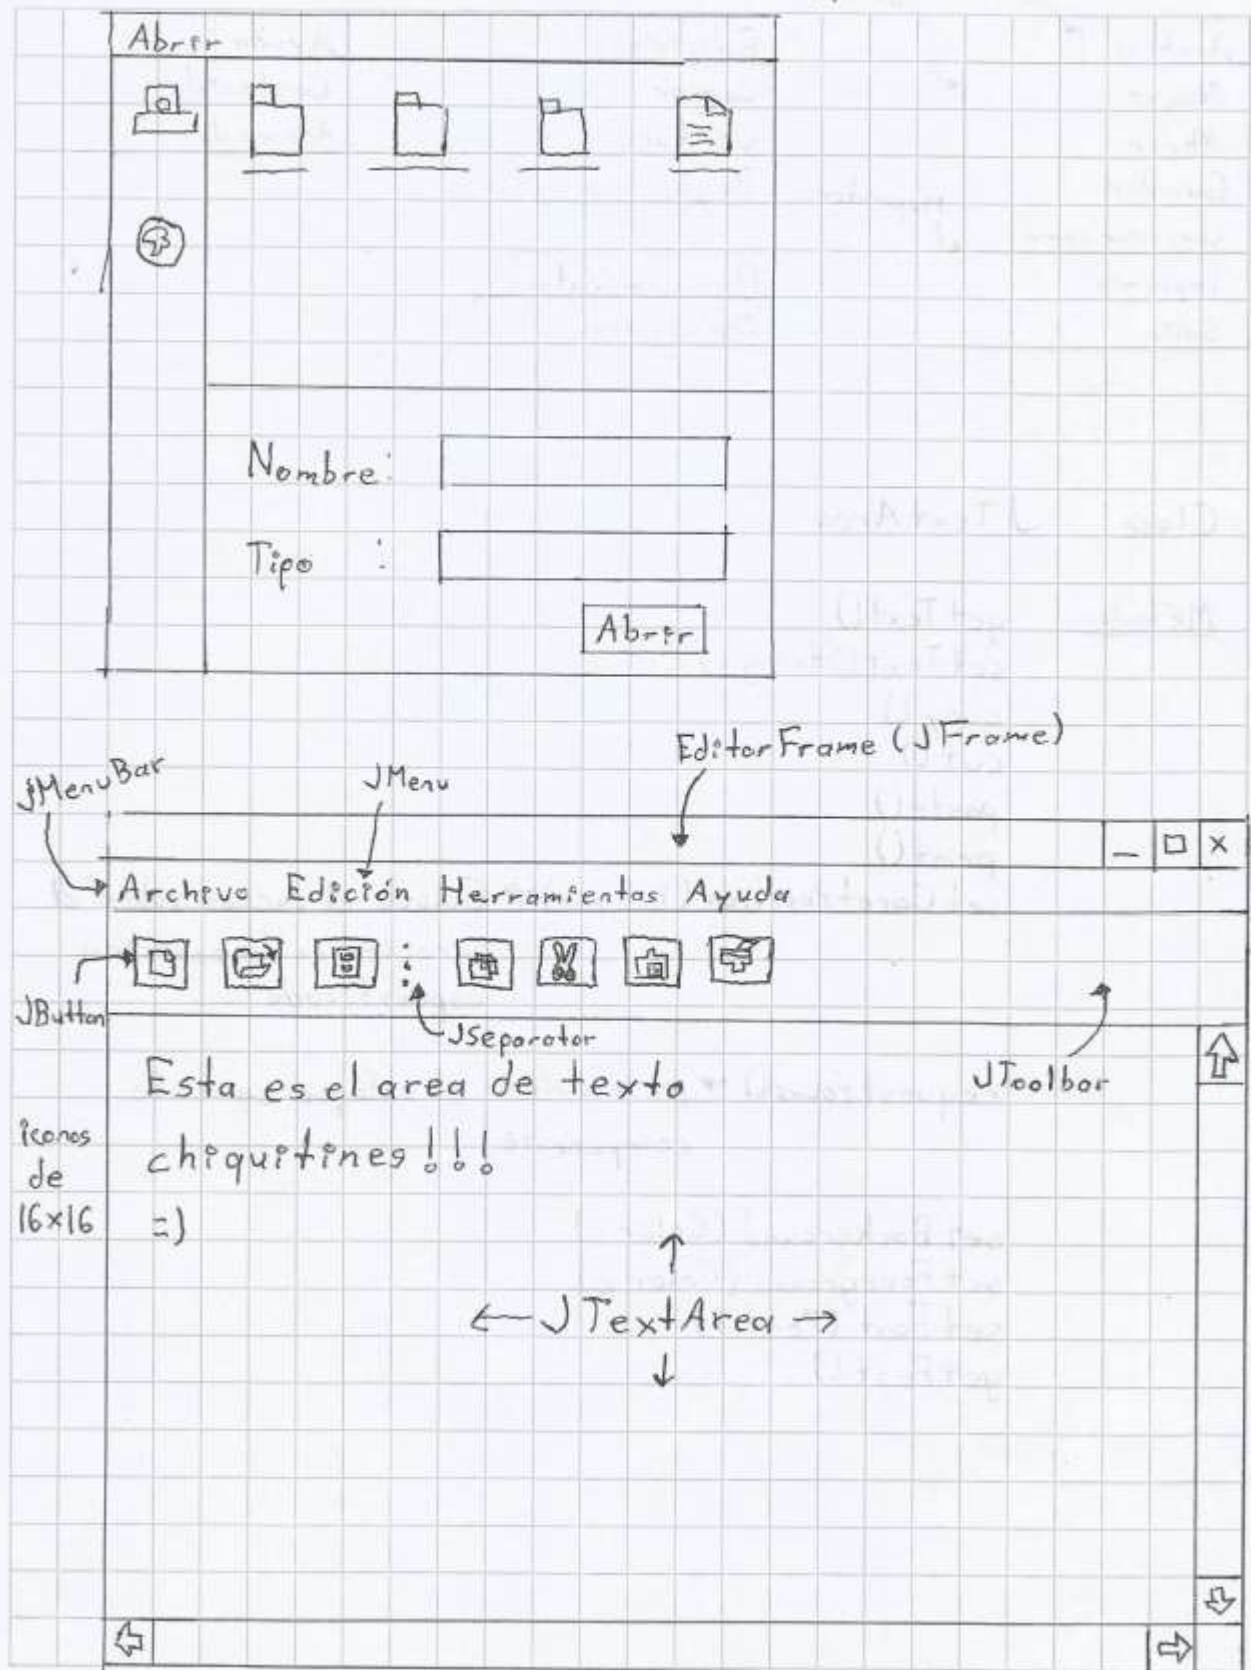 Abrir
Nombre:
Tipo :
Abrir
EditorFrame (JFrame)
JMenuBar
JMenu
Archivo Edición Herramientas Ayuda
JButton
JSeparator
JToolbar
Esta es el area de texto
chiquitines !!!
=)
iconos
de
16x16
JTextArea